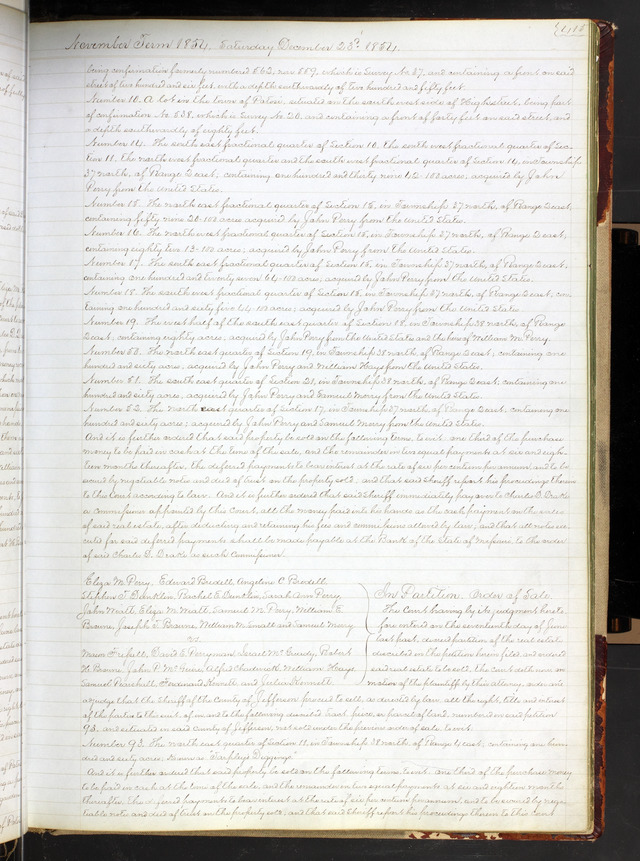 November Term 1854. Saturday December 23d 1854.
being confirmation formerly numbered 562, now 559, which is Survey No 37, and containing a front on said
street of two hundred and six feet, with a depth southwardly of two hundred and fifty feet.
Number 10. A lot in the town of Potosi, situated on the south west side of High street, being part
of confirmation No 538, which is Survey No 20, and containing a front of forty feet on said street, and
a depth southwardly of eighty feet.
Number 14. The south east fractional quarter of Section 10, the south west fractional quarter of Sec-
tion 11, the north west fractional quarter and the south west fractional quarter of Section 14, in Township
37 north, of Range 2 east, containing one hundred and thirty nine 42-100 acres, acquired by John
Perry from the United States.
Number 15. The north east fractional quarter of Section 15, in Township 37 north, of Range 2 east,
containing fifty nine 20-100 acres acquired by John Perry from the United States.
Number 16. The north west fractional quarter of Section 15, in Township 37 north, of Range 2 east,
containing eighty two 13-100 acres; acquired by John Perry from the United States.
Number 17. The south east fractional quarter of Section 15, in Township 37 north, of Range 2 east,
containing one hundred and twenty seven 64-100 acres, acquired by John Perry from the United States.
Number 18. The south west fractional quarter of Section 15, in Township 37 north, of Range 2 east, con-
taining one hundred and sixty five 44-100 acres; acquired by John Perry from the United States.
Number 19. The west half of the south east quarter of Section 18, in Township 38 north, of Range
2 east, containing eighty acres, acquired by John Perry from the United States and the heirs of William M. Perry.
Number 50. The north east quarter of Section 19, in Township 38 north, of Range 2 east; containing one
hundred and sixty acres; acquired by John Perry and William Hays from the United States.
Number 51. The south east quarter of Section 21, in Township 38 north, of Range 2 east, containing one
hundred and sixty acres; acquired by John Perry and Samuel Merry from the United States.
Number 52. The north east quarter of Section 17, in Township 37 north, of Range 2 east, containing one
hundred and sixty acres; acquired by John Perry and Samuel Merry from the United States.
And it is further ordered that said property be sold on the following terms, to wit: one third of the purchase
money to be paid in cash at the time of the sale, and the remainder in two equal payments at six and eigh-
teen months thereafter, the deferred payments to bear interest at the rate of six per centum per annum, and to be
secured by negotiable notes and deed of trust on the property sold; and that said sheriff report his proceedings therein
to this Court according to law. And it is further ordered that said Sheriff immediately pay over to Charles D. Drake
a commissioner appointed by this Court, all the money paid into his hands as the cash payment on the sales
of said real estate, after deducting and retaining his fees and commissions allowed by law; and that all notes exe-
cuted for said deferred payments shall be made payable at the Bank of the State of Missouri to the order
of said Charles D. Drake as such Commissioner.
Eliza M. Perry, Edward Bredell, Angeline C. Bredell,
Stephen T. Dunklin, Rachel E. Dunklin, Sarah Ann Perry,
John Hiatt, Eliza M. Hiatt, Samuel M. Perry, William E.
Browne, Joseph T. Browne, William M. Small and Samuel Merry
vs.
Mason Frissell, David E. Perryman, Israel McCready, Robert
H. Browne, John P. McGuire, Alfred Chadwick, William Hays,
Samuel Pickerell, Ferdinand Kennett and Julia Kennett
In Partition. Order of Sale.
The Court having by its judgment hereto-
fore entered on the seventeenth day of June
last past, decreed partition of the real estate
described in the petition herein filed and ordered
said real estate to be sold, the Court doth now on
motion of the plaintiffs by their attorney, order and
adjudge that the Sheriff of the County of Jefferson proceed to sell, as directed by law, all the right, title and interest
of the parties to this suit, of, in and to the following described tract, piece, or parcel of land, numbered in said petition
93, and situated in said County of Jefferson, not sold under the previous order of sale to wit:
Number 93. The north east quarter of Section 11, in Township 38 north, of Range 4 east, containing one hun-
dred and sixty acres; known as "Tarpley's Diggings."
And it is further ordered that said property be sold on the following terms, to wit: one third of the purchase money
to be paid in cash at the time of the sale, and the remainder in two equal payments at six and eighteen months
thereafter, the deferred payments to bear interest at the rate of six per centum per annum, and to be secured by nego-
tiable notes and deed of trust on the property sold; and that said sheriff report his proceedings therein to this Court